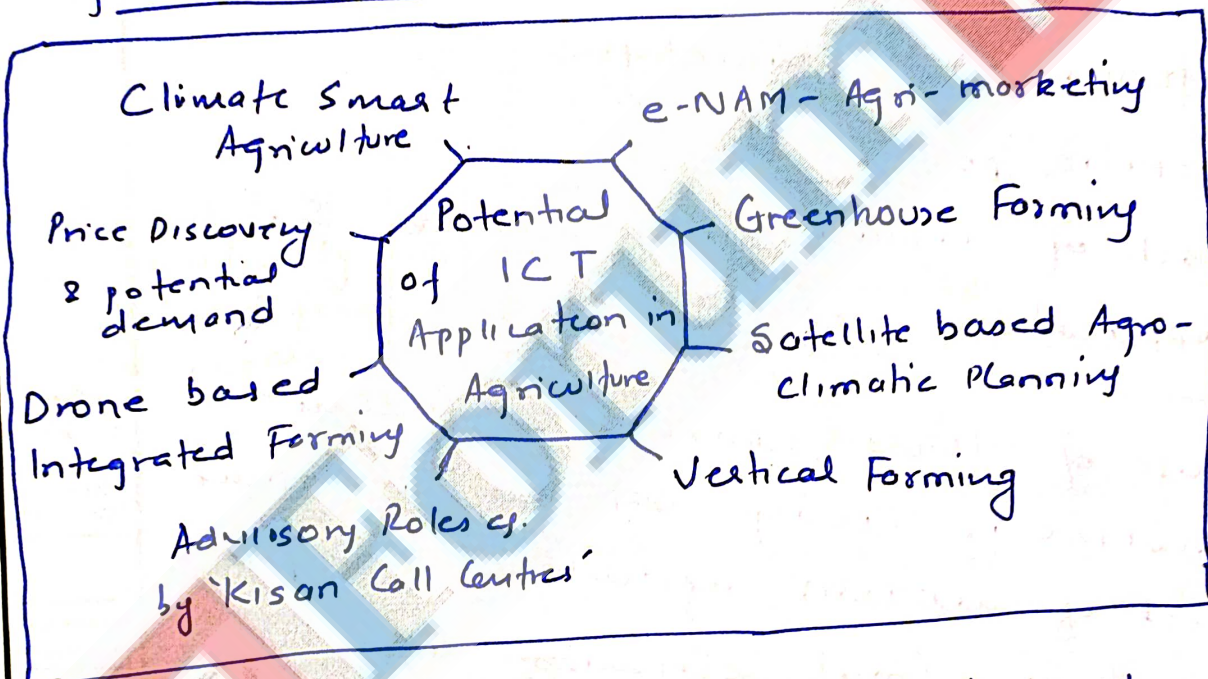 Climate Smart
Agriculture
e-NAM - Agri-marketing
Price Discovery
& potential
demand
Potential
of ICT
Application in
Agriculture
Greenhouse Farming
Satellite based Agro-
Climatic Planning
Drone based
Integrated Farming
Vertical Farming
Advisory Roles eg.
by 'Kisan Call Centres'
Forum